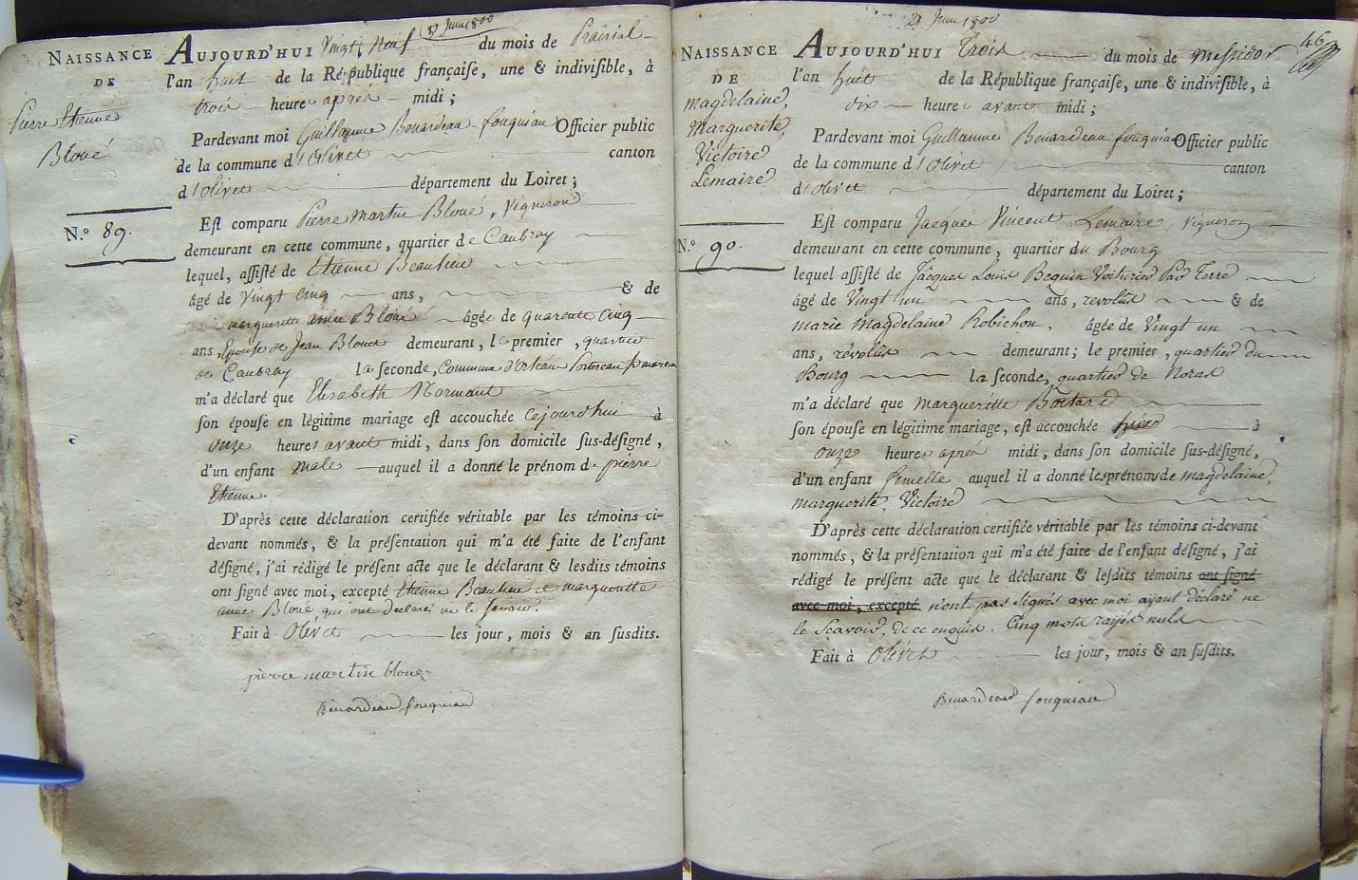 NAISSANCE
DE
Pierre Etienne
Bloué
N.º 89.
Juin 1800
AUJOURD'HUI Vingt Neuf du mois de Prairial
l'an huit de la République française, une & indivisible, à
trois heures après midi ;
Pardevant moi Guillaume Benardeau fouqueau Officier public
de la commune d'Olivet canton
d'Olivet département du Loiret ;
Est comparu Pierre Martin Bloué, Vigneron
demeurant en cette commune, quartier de Caubray
lequel, assisté de Etienne Beaulieu
âgé de Vingt Cinq ans, & de
marguerite aimée Bloué âgée de quarente Cinq
ans, Epouse de Jean Blouet demeurant, le premier, quartier
de Caubray la seconde, Commune d'orléans
m'a déclaré que Elisabeth Normant
son épouse en légitime mariage est accouchée Cejourd'hui à
onze heures avant midi, dans son domicile sus-désigné,
d'un enfant male auquel il a donné le prénom de pierre
Etienne.
D'après cette déclaration certifiée véritable par les témoins ci-
devant nommés, & la présentation qui m'a été faite de l'enfant
désigné, j'ai rédigé le présent acte que le déclarant & lesdits témoins
ont signé avec moi, excepté Etienne Beaulieu et margueritte
aimée Bloué qui ont declaré ne le savoir.
Fait à Olivet les jour, mois & an susdits.
pierre martin bloue
Benardeau fouqueau
NAISSANCE
DE
magdelaine,
Marguerite,
Victoire
Lemaire
N.º 90.
Juin 1800
46
AUJOURD'HUI Trois du mois de Messidor
l'an huit de la République française, une & indivisible, à
dix heures avant midi ;
Pardevant moi Guillaume Benardeau fouqueau Officier public
de la commune d'Olivet canton
d'Olivet département du Loiret ;
Est comparu Jacques Vincent Lemaire, Vigneron
demeurant en cette commune, quartier du Bourg
lequel assisté de Jacques Louis Bequin Voiturier Par Terre
âgé de Vingt un ans, revolus & de
marie Magdelaine Robichon. âgée de Vingt un
ans, révolus demeurant ; le premier, quartier du
Bourg la seconde, quartier de Noras
m'a déclaré que margueritte Boitard
son épouse en légitime mariage, est accouchée hier à
onze heures après midi, dans son domicile sus-désigné,
d'un enfant femelle auquel il a donné les prénoms de magdelaine,
marguerite, Victoire
D'après cette déclaration certifiée véritable par les témoins ci-devant
nommés, & la présentation qui m'a été faite de l'enfant désigné, j'ai
rédigé le présent acte que le déclarant & lesdits témoins ont signé
avec moi, excepté n'ont pas signés avec moi ayant déclaré ne
le scavoir, de ce enquis. Cinq mots rayés nuls
Fait à Olivet les jour, mois & an susdits.
Benardeau fouqueau